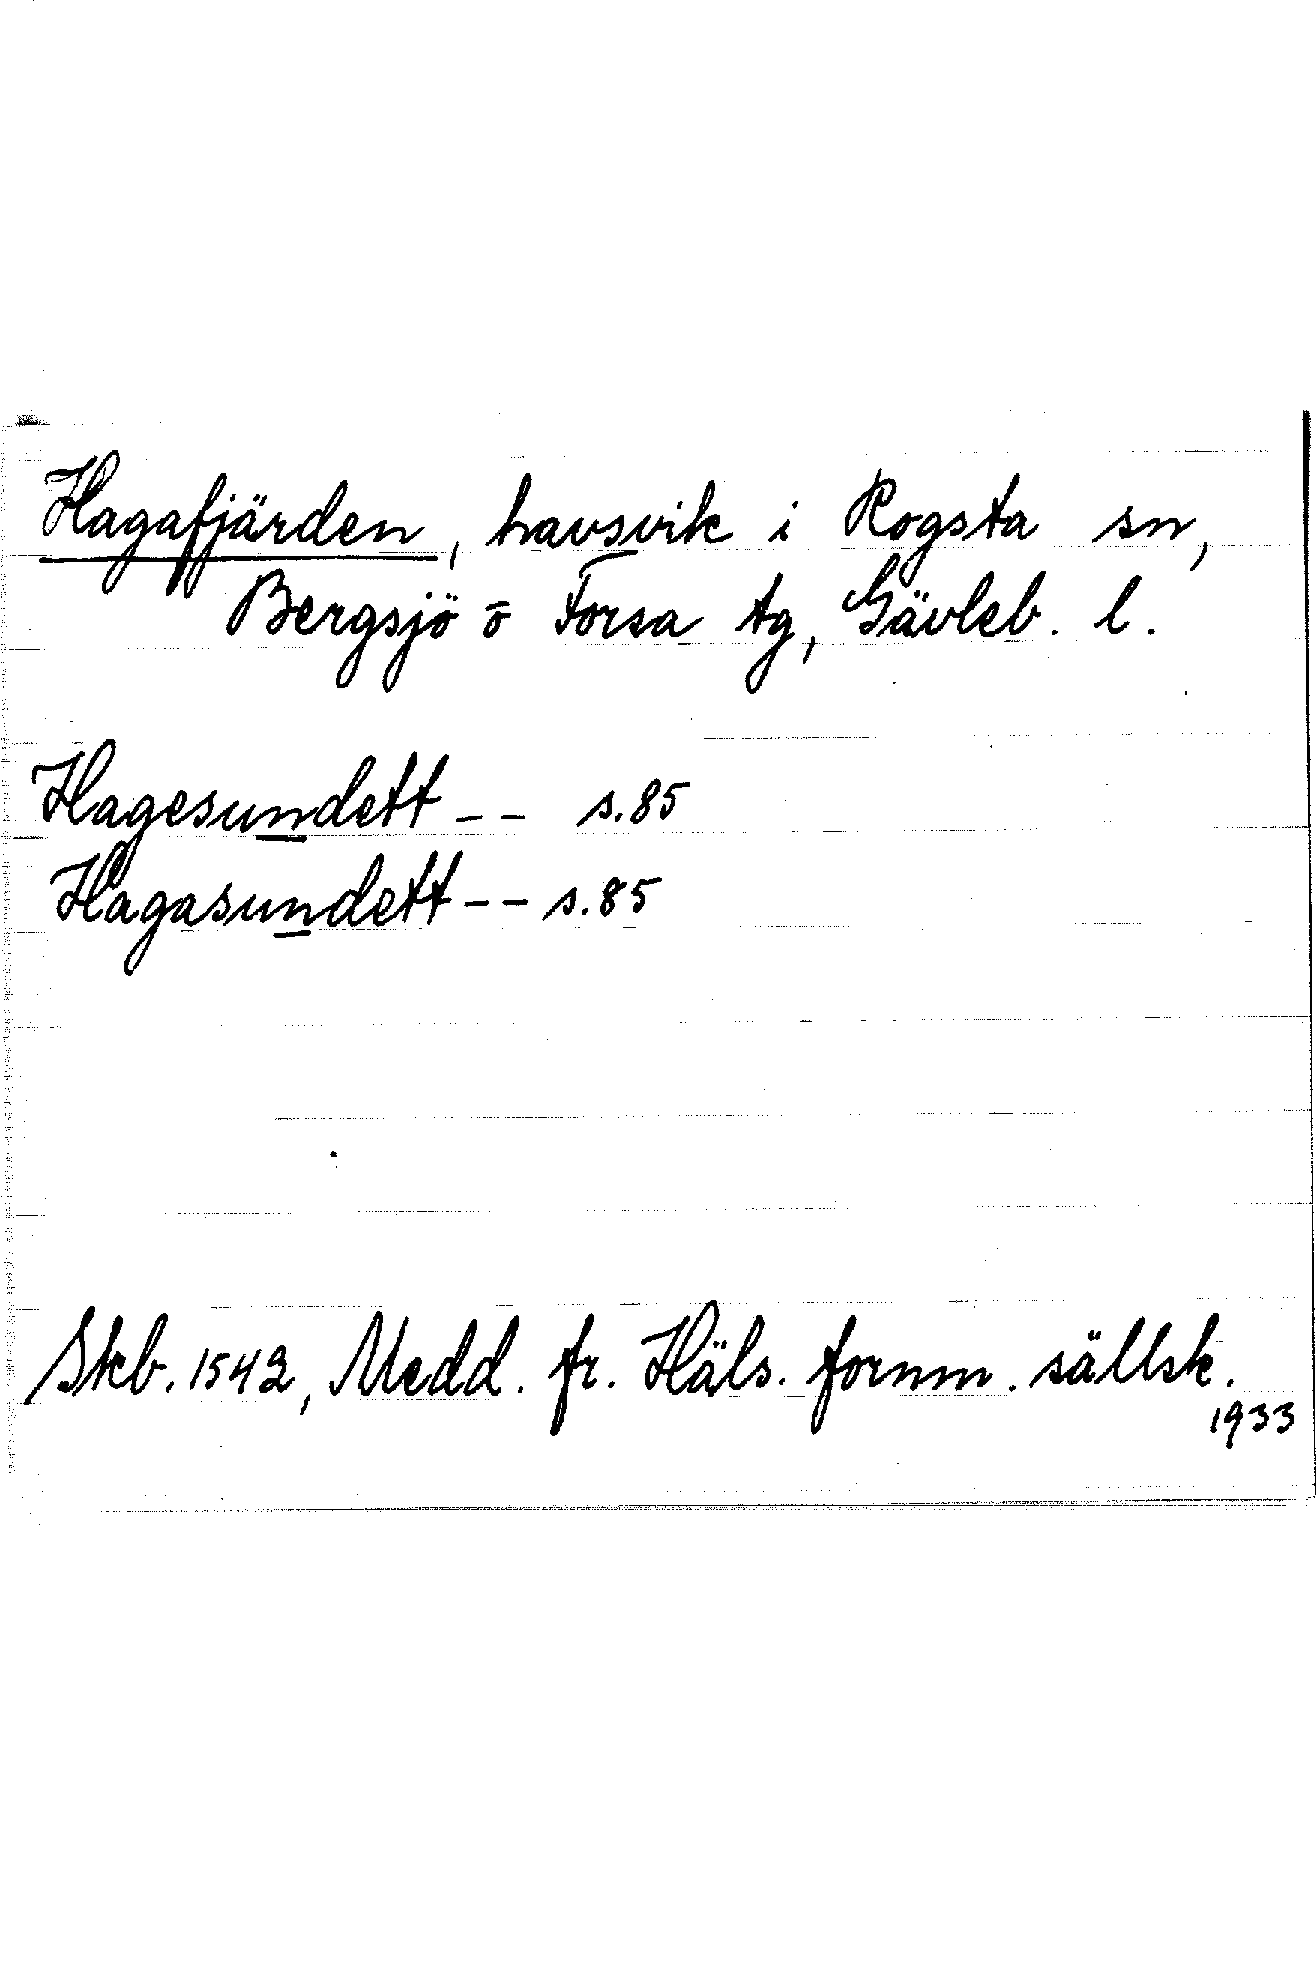 Hagafjärden, havsvik i Rogsta sn,
Bergsjö o Forsa tg, Gävleb. l.
Hagesundett -- s.85
Hagasundett -- s.85
Skb. 1542, Medd. fr. Häls. fornm. sällsk.
1933